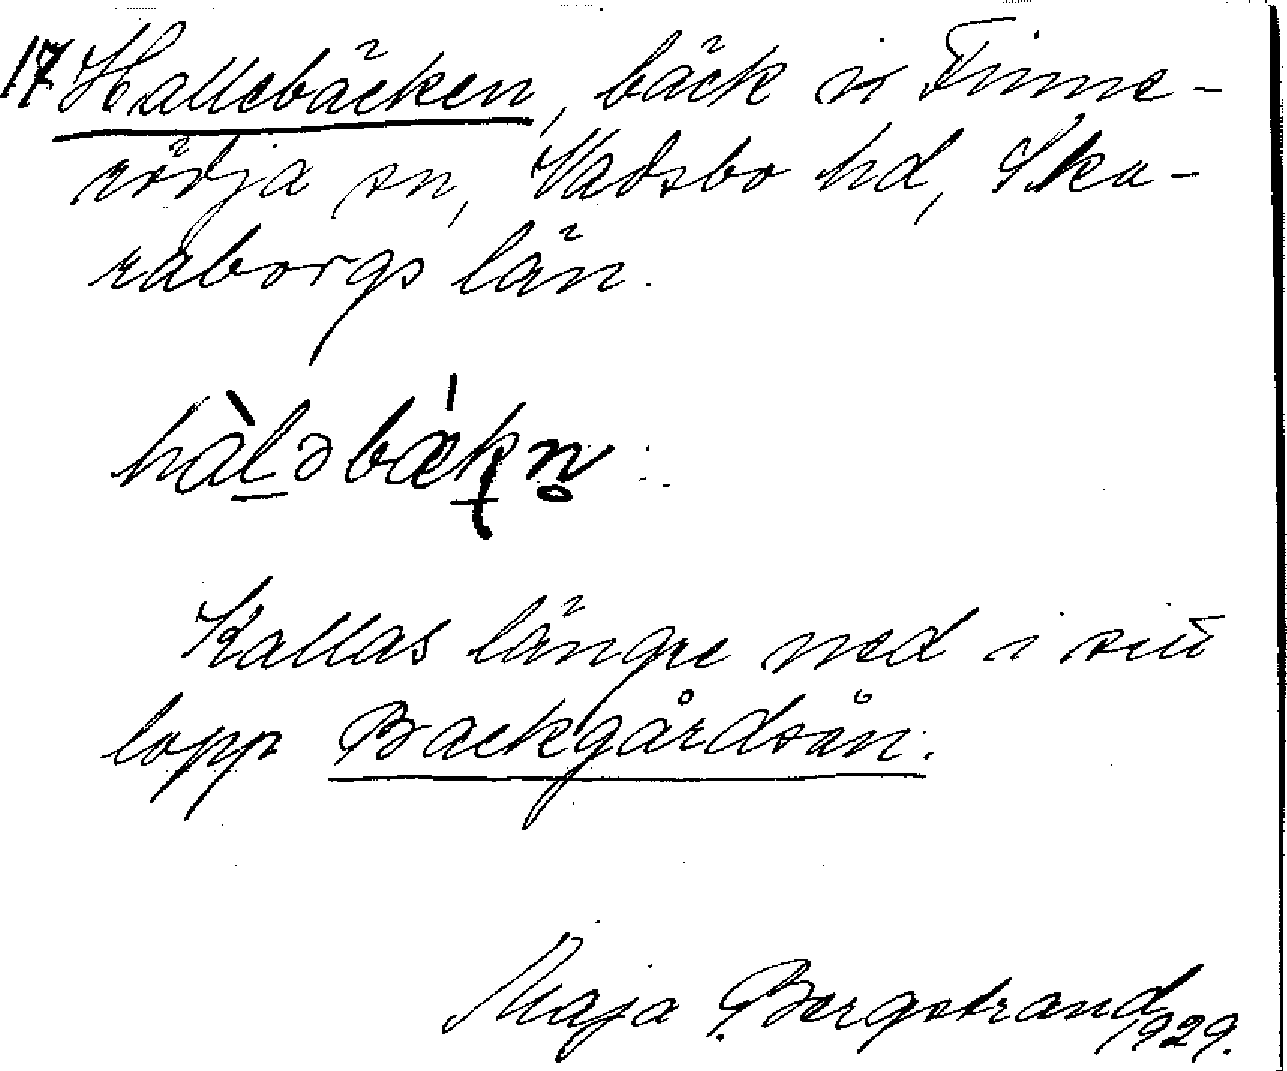 17 Hallebäcken, bäck i Finne-
rödja sn, Vadsbo hd, Ska-
raborgs län.
hàl̠əbæ̀k̟n̥.
Kallas längre ned i sitt
lopp Backgårdsån.
Maja Bergstrand 1929.